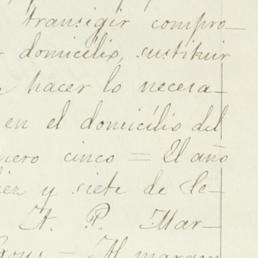 transigir compro-
domicilio, sustituir
hacer lo necesa-
en el domicilio del
nero cinco = El año
diez y siete de Fe-
A. P. Mar-
Al margen